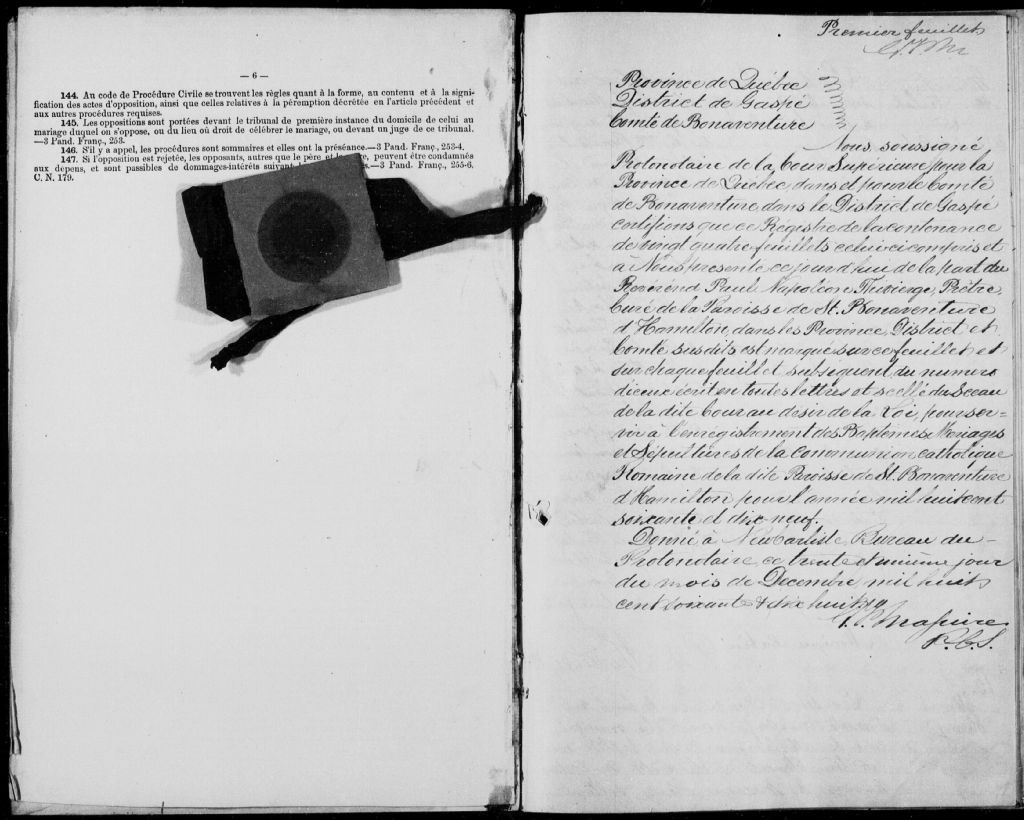 — 6 —
144. Au code de Procédure Civile se trouvent les règles quant à la forme, au contenu et à la signi-
fication des actes d'opposition, ainsi que celles relatives à la péremption décrétée en l'article précédent et
aux autres procédures requises.
145. Les oppositions sont portées devant le tribunal de première instance du domicile de celui au
mariage duquel on s'oppose, ou du lieu où droit de célébrer le mariage, ou devant un juge de ce tribunal.
—3 Pand. Franç., 253.
146. S'il y a appel, les procédures sont sommaires et elles ont la préséance.—3 Pand. Franç., 253-4.
147. Si l'opposition est rejetée, les opposants, autres que le père et peuvent être condamnés
aux dépens, et sont passibles de dommages-intérêts suivant —3 Pand. Franç., 255-6.
C. N. 179.
Premier feuillet
Province de Québec
District de Gaspé
Comté de Bonaventure
Nous, soussigné,
Protonotaire de la Cour Supérieure pour la
Province de Québec, dans et pour le Comté
de Bonaventure dans le District de Gaspé
certifions que ce Régistre de la contenance
de vingt quatre feuillets celui ci compris et
à Nous présenté ce jourd'hui de la part du
Révérend Paul Napoléon Thivierge, Prêtre,
Curé de la Paroisse de St. Bonaventure
d'Hamilton, dans les Province, District et
Comté susdits est marqué sur ce feuillet et
sur chaque feuillet subséquent du numéro
d'iceux écrit en toutes lettres et scellé du Sceau
de la dite Cour au désir de la Loi, pour ser=
vir à l'enrégistrement des Baptêmes Mariages
et Sépultures de la communion catholique
Romaine de la dite Paroisse de St. Bonaventure
d'Hamilton pour l'année mil huit cent
soixante et dix-neuf.
Donné à New Carlisle, Bureau du
Protonotaire, ce trente et unième jour
du mois de Décembre mil huit
cent soixante & dix huit
Maguire
P.C.S.